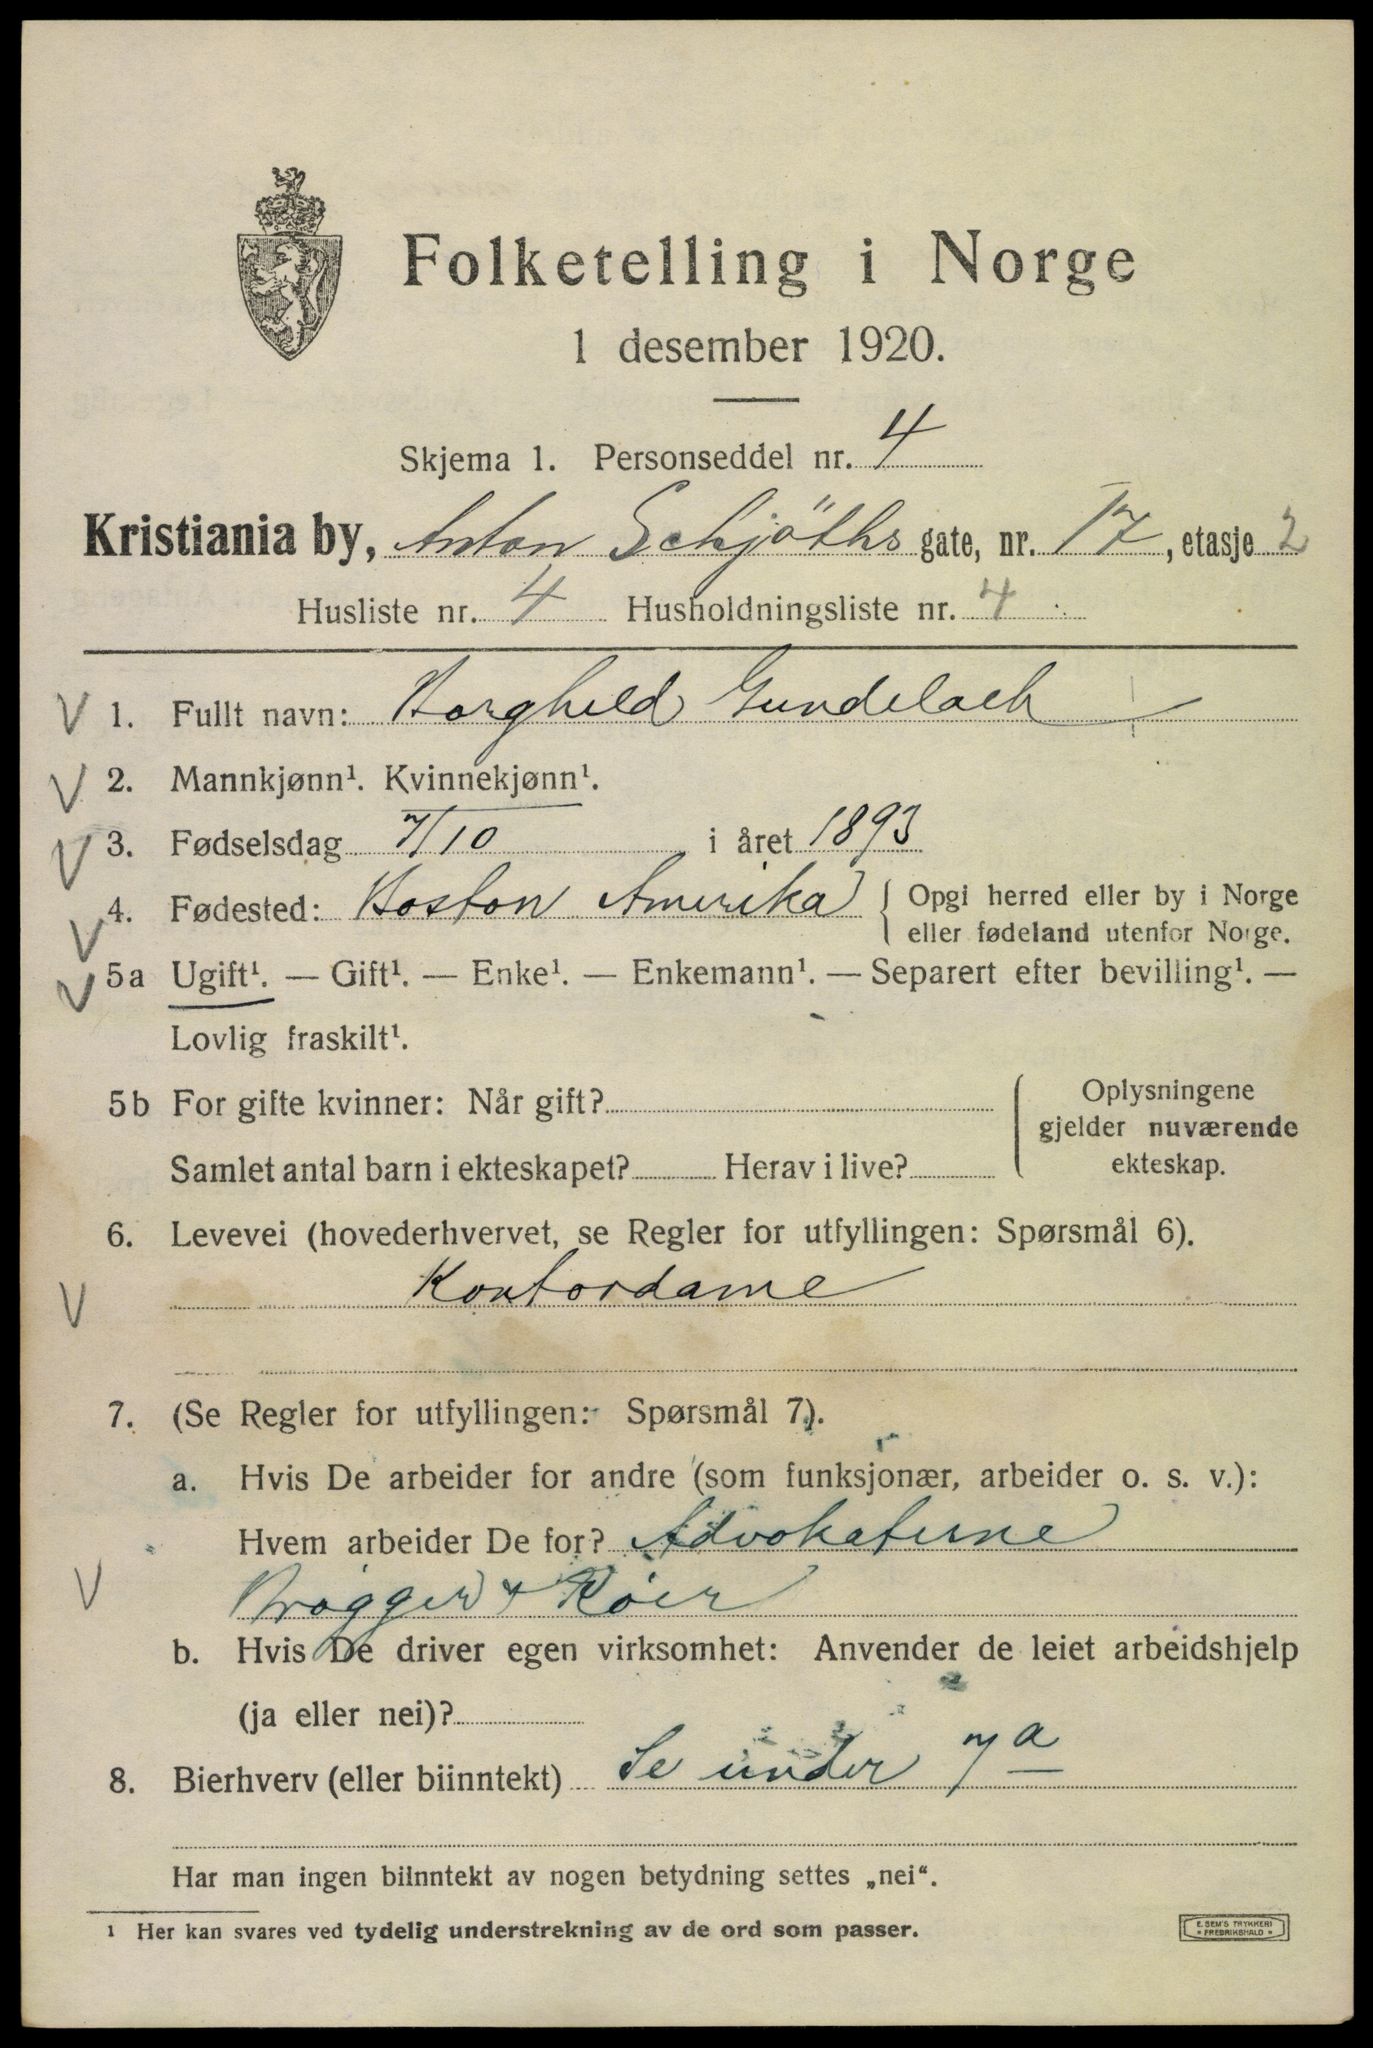 Folketelling i Norge
1 desember 1920.
Skjema 1. Personseddel nr. 4
Kristiania by, Anton Schjöths gate, nr. 17, etasje 2
Husliste nr. 4 Husholdningsliste nr. 4
V 1. Fullt navn: Borghild Gundelach
V 2. Mannkjønn¹. Kvinnekjønn¹.
V 3. Fødselsdag 7/10 i året 1893
V 4. Fødested: Boston Amerika { Opgi herred eller by i Norge
eller fødeland utenfor Norge.
V 5a Ugift¹. — Gift¹. — Enke¹. — Enkemann¹. — Separert efter bevilling¹. —
Lovlig fraskilt¹.
5b For gifte kvinner: Når gift? Oplysningene
gjelder nuværende
Samlet antal barn i ekteskapet? Herav i live? ekteskap.
6. Levevei (hovederhvervet, se Regler for utfyllingen: Spørsmål 6).
V Kontordame
7. (Se Regler for utfyllingen: Spørsmål 7).
a. Hvis De arbeider for andre (som funksjonær, arbeider o. s. v.):
Hvem arbeider De for? Advokaterne
V Brøgger & Röer
b. Hvis De driver egen virksomhet: Anvender de leiet arbeidshjelp
(ja eller nei)?
8. Bierhverv (eller biinntekt) Se under 7a
Har man ingen biinntekt av nogen betydning settes „nei“.
1 Her kan svares ved tydelig understrekning av de ord som passer.
E. SEM'S TRYKKERI
FREDRIKSHALD